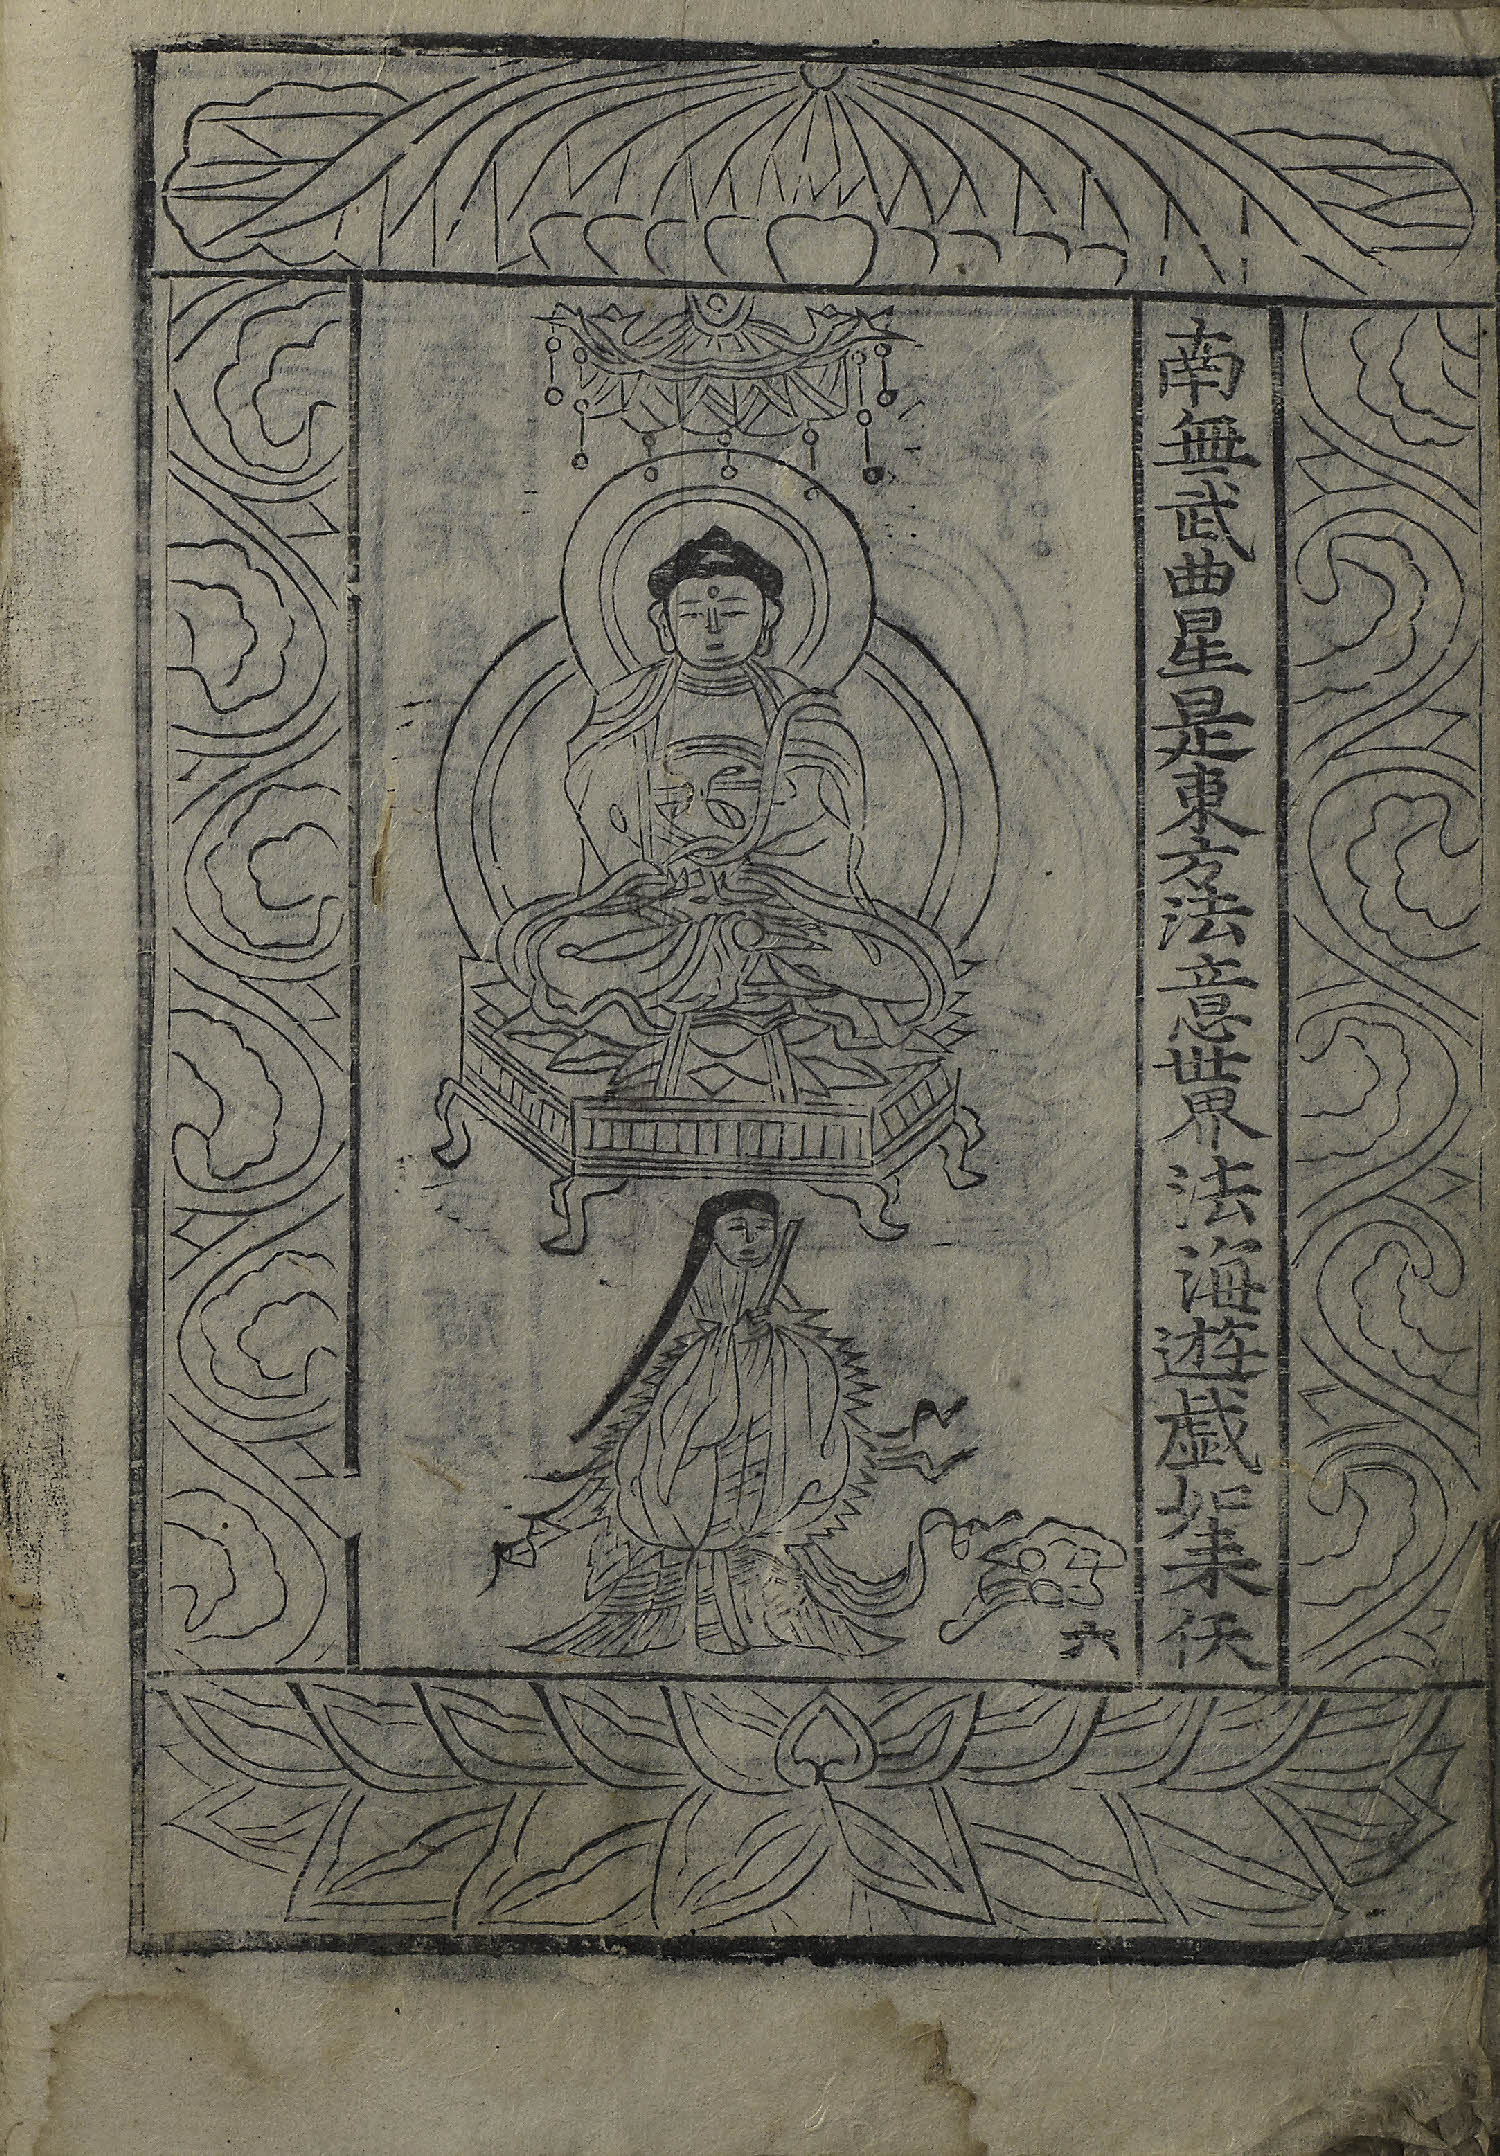 南無武曲星是東方法意世界法海遊戯如来仸
六